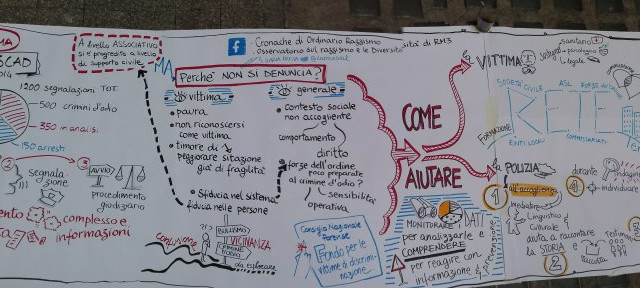 MA
SCAD
2014
1200 segnalazioni TOT.
500 crimini d'odio
350 in analisi
150 arresti
2
segnala-
zione
3
AVVIO
procedimento
giudiziario
complesso e
informazioni
A livello ASSOCIATIVO
si è progredito a livello
di supporto civile
Cronache di Ordinario Razzismo
Osservatorio sul razzismo e le Diversità di RM3
MA
Perchè NON SI DENUNCIA?
vittima
• paura
• non riconoscersi
come vittima
• timore di
peggiorare sitazione
già di fragilità
Sfiducia nel sistema
fiducia nelle persone
confusione
BULLISMO
VICINANZA
CRIMINE
D'ODIO
da esplorare
generale
• contesto sociale
non accogliente
comportamento
diritto
• forze dell'ordine
poco preparate
al crimine d'odio?
sensibilità
operativa
Consiglio Nazionale
Forense
Fondo per le
vittime di discrimi-
nazione
COME
AIUTARE
MONITORARE DATI
per analizzarle e
COMPRENDERE
per reagire con
informazione e
prevenzione
VITTIMA
sanitario
psicologico
legale
SOCIETÀ CIVILE
ASL
FORZE
RETE
FORMAZIONE
ENTI LOCALI
COMMISSARIATI
la POLIZIA
1
all'accoglienza
mediatore
Linguistico
Culturale
aiuta a raccontare
la STORIA e
2
raccolta
durante
indagini
individuare